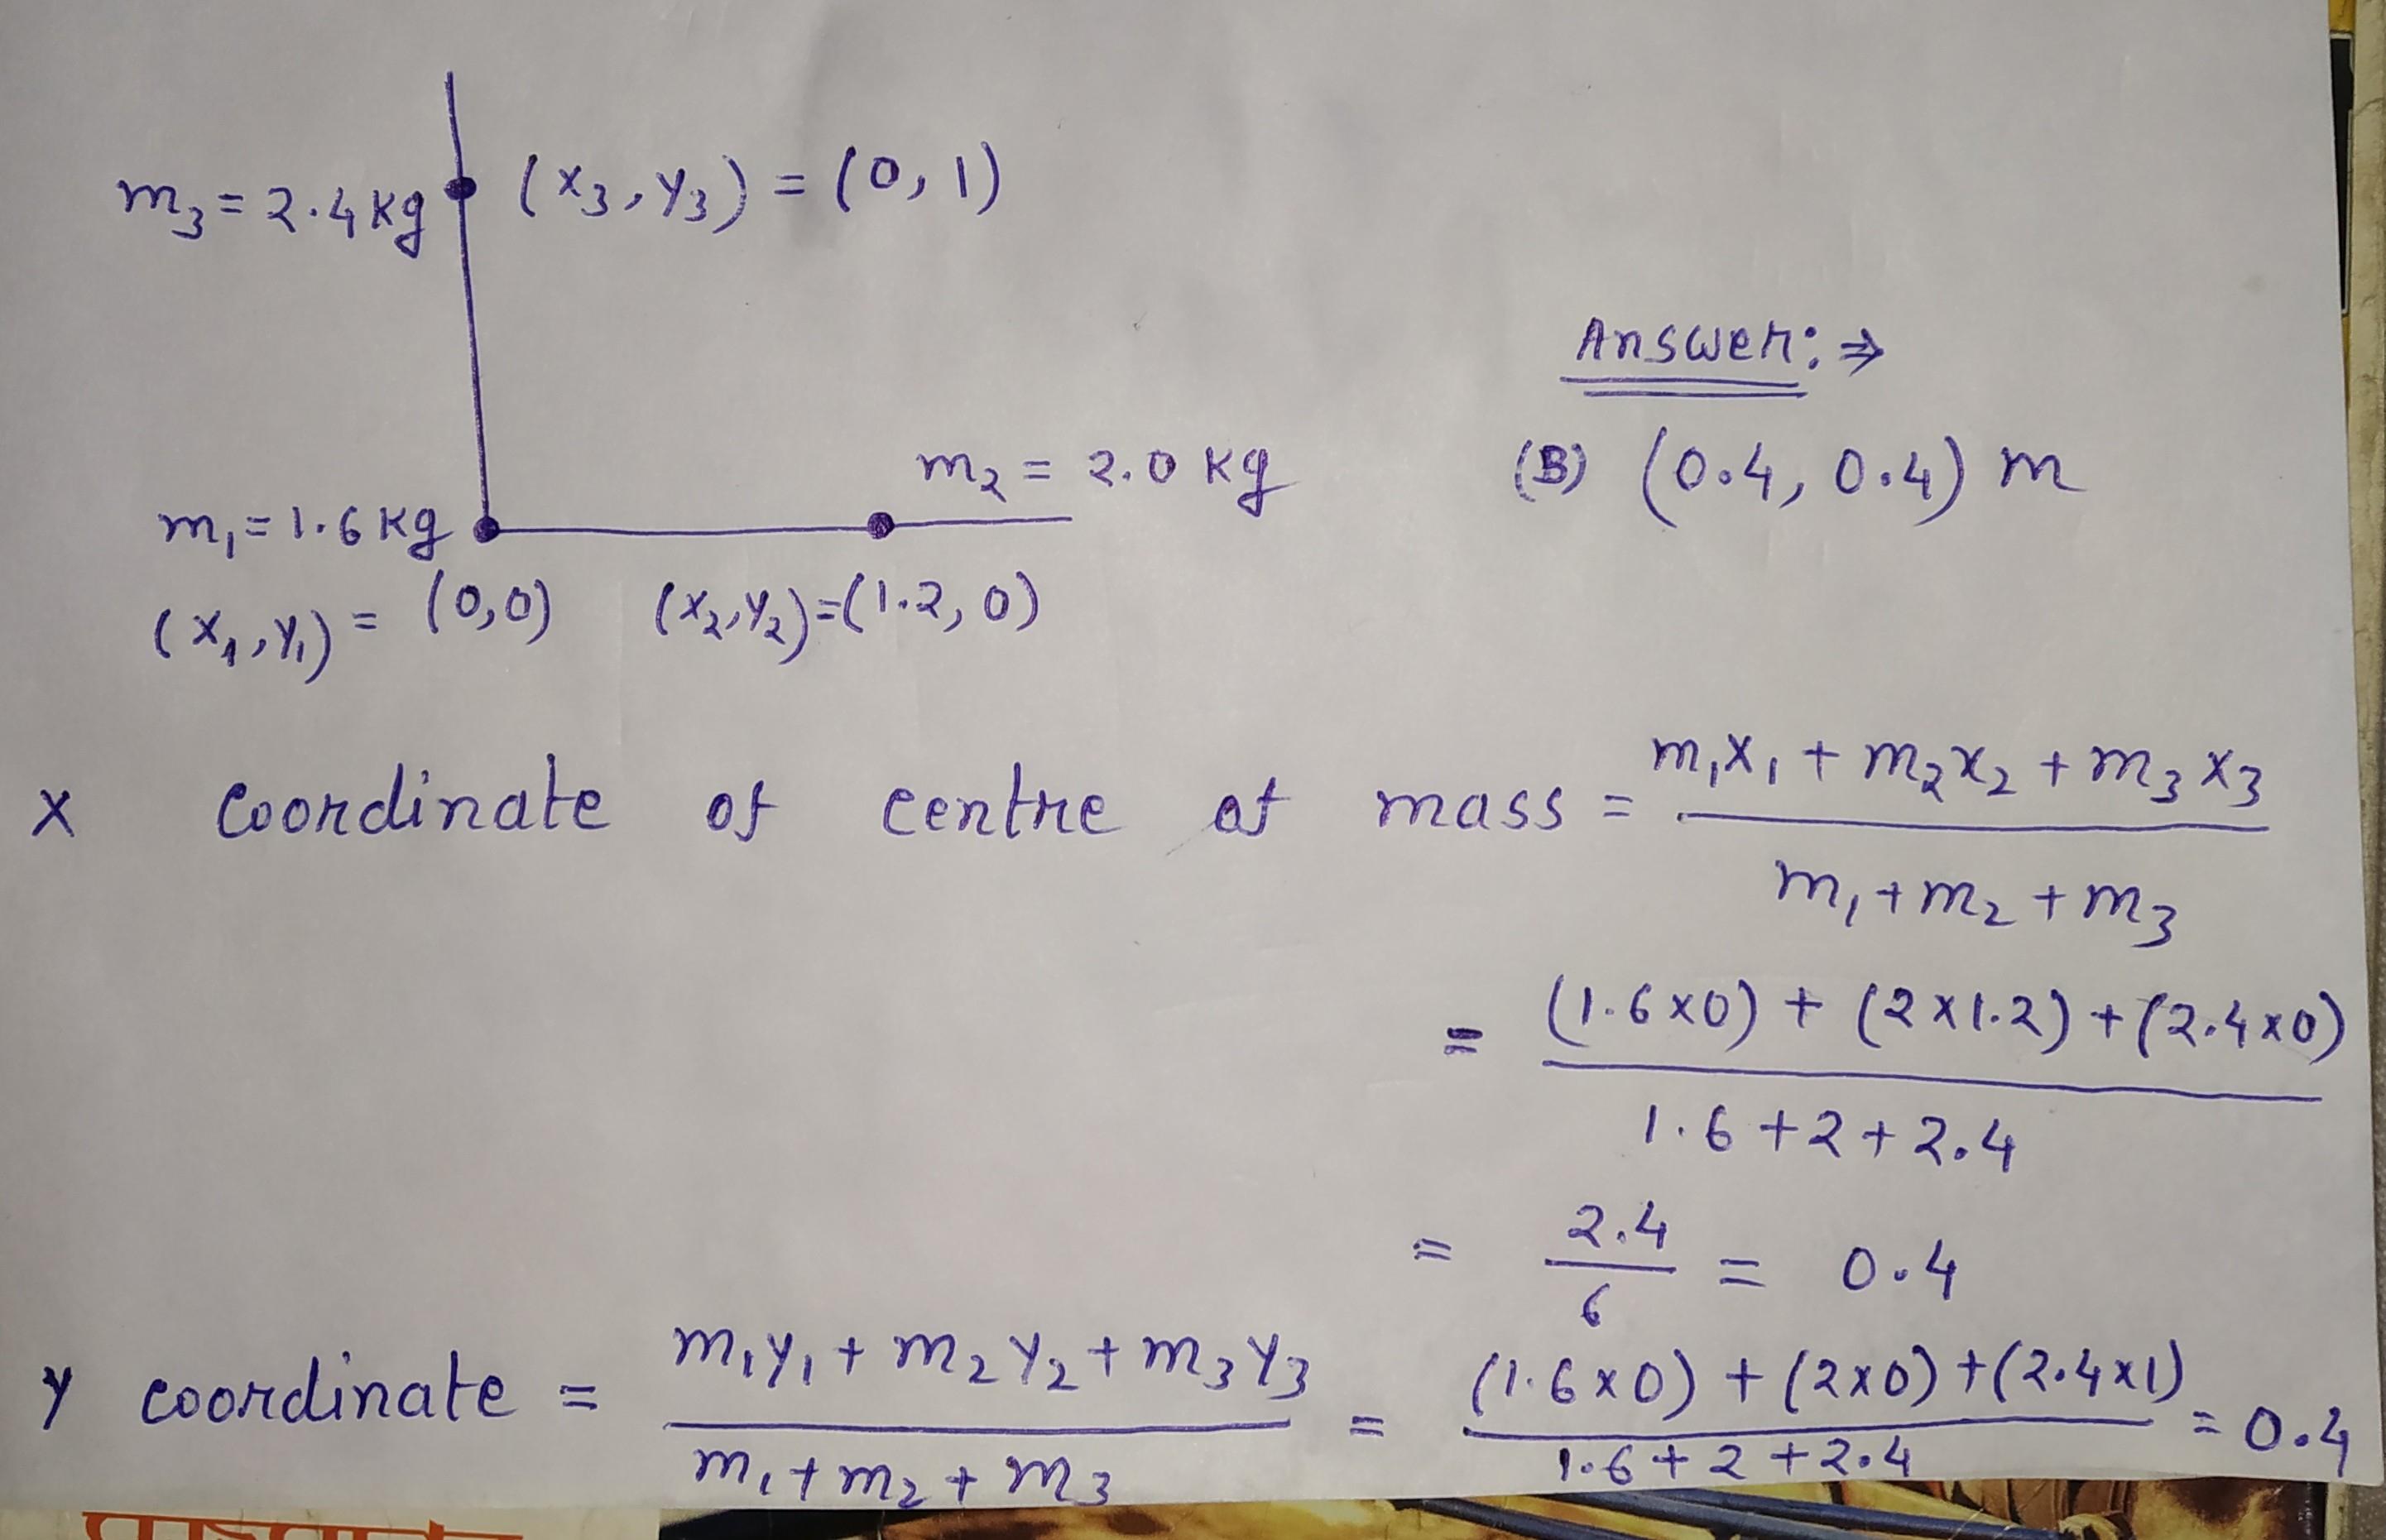 m₃ = 2.4 kg (x₃, y₃) = (0, 1)
Answer: ⇒
m₂ = 2.0 kg (B) (0.4, 0.4) m
m₁ = 1.6 kg
(x₁, y₁) = (0,0) (x₂, y₂) = (1.2, 0)
x coordinate of centre of mass = m₁x₁ + m₂x₂ + m₃x₃
m₁ + m₂ + m₃
= (1.6 x 0) + (2 x 1.2) + (2.4 x 0)
1.6 + 2 + 2.4
= 2.4 / 6 = 0.4
y coordinate = m₁y₁ + m₂y₂ + m₃y₃ / m₁ + m₂ + m₃ = (1.6 x 0) + (2 x 0) + (2.4 x 1) / 1.6 + 2 + 2.4 = 0.4